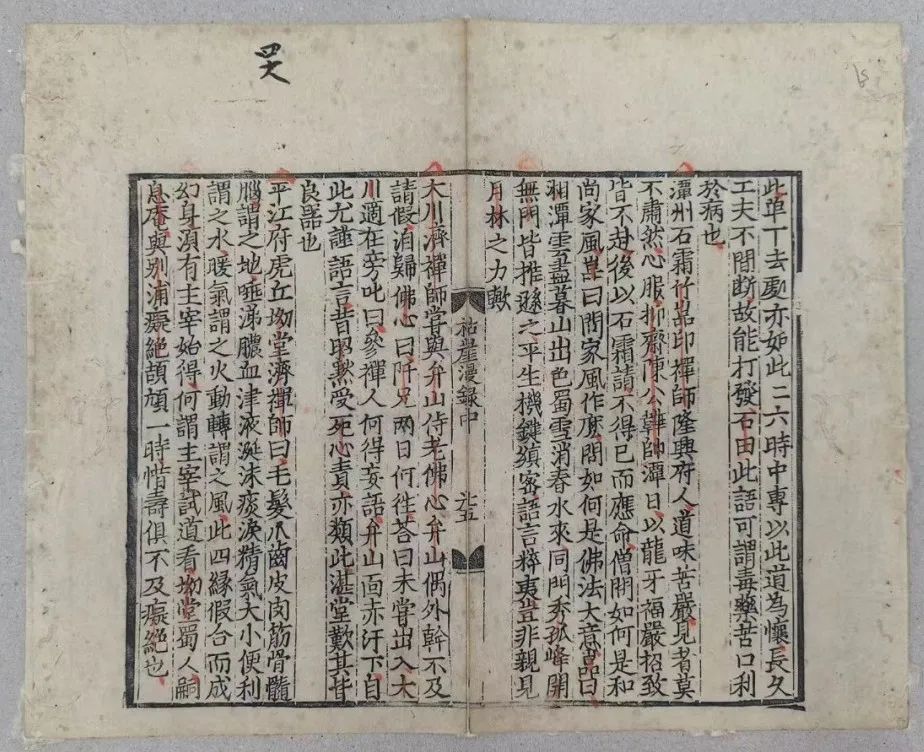 此單丁去處亦如此二六時中專以此道為懷長久
工夫不間断故能打發石田此語可謂毒藥苦口利
於病也
潭州石霜竹嵒印禪師隆興府人道味苦嚴見者莫
不肅然心服抑齋陳公韡帥潭日以龍牙福嚴招致
皆不赴後以石霜請不得已而應命僧問如何是和
尚家風嵒曰問家風作麼問如何是佛法大意嵒曰
湘潭雲盡暮山出巴蜀雪消春水來同門秀孤峰開
無門皆推遜之平生機鍵縝密語言粹夷豈非親見
月林之力歟
枯崖漫録中 廿五
大川濟禪師嘗與弁山侍老佛心弁山偶外幹不及
請假洎歸佛心曰阡兄兩日何徃荅曰未嘗出入大
川適在旁叱曰參禪人何得妄語弁山面赤汗下自
此尤謹語言昔明黙受死心責亦類此湛堂歎其皆
良器也
平江府虎丘坳堂濟禪師曰毛髮爪齒皮肉筋骨髓
腦謂之地唾涕膿血津液涎沫痰淚精氣大小便利
謂之水暖氣謂之火動轉謂之風此四縁假合而成
幻身須有主宰始得何謂主宰試道看坳堂蜀人嗣
息菴與別浦癡絶頡頏一時惜壽俱不及癡絶也